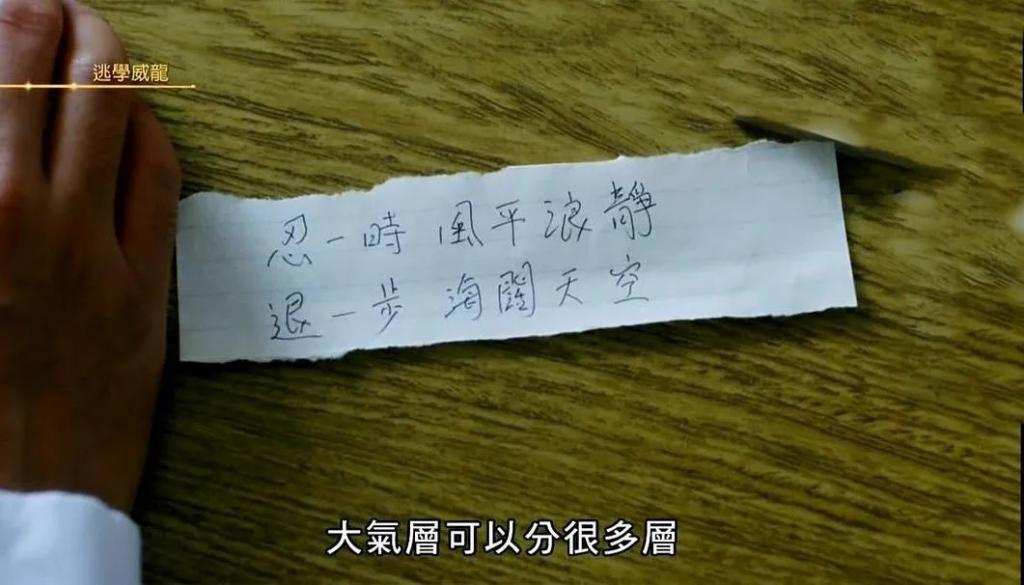 逃學威龍
忍一時 風平浪靜
退一步 海闊天空
大氣層可以分很多層